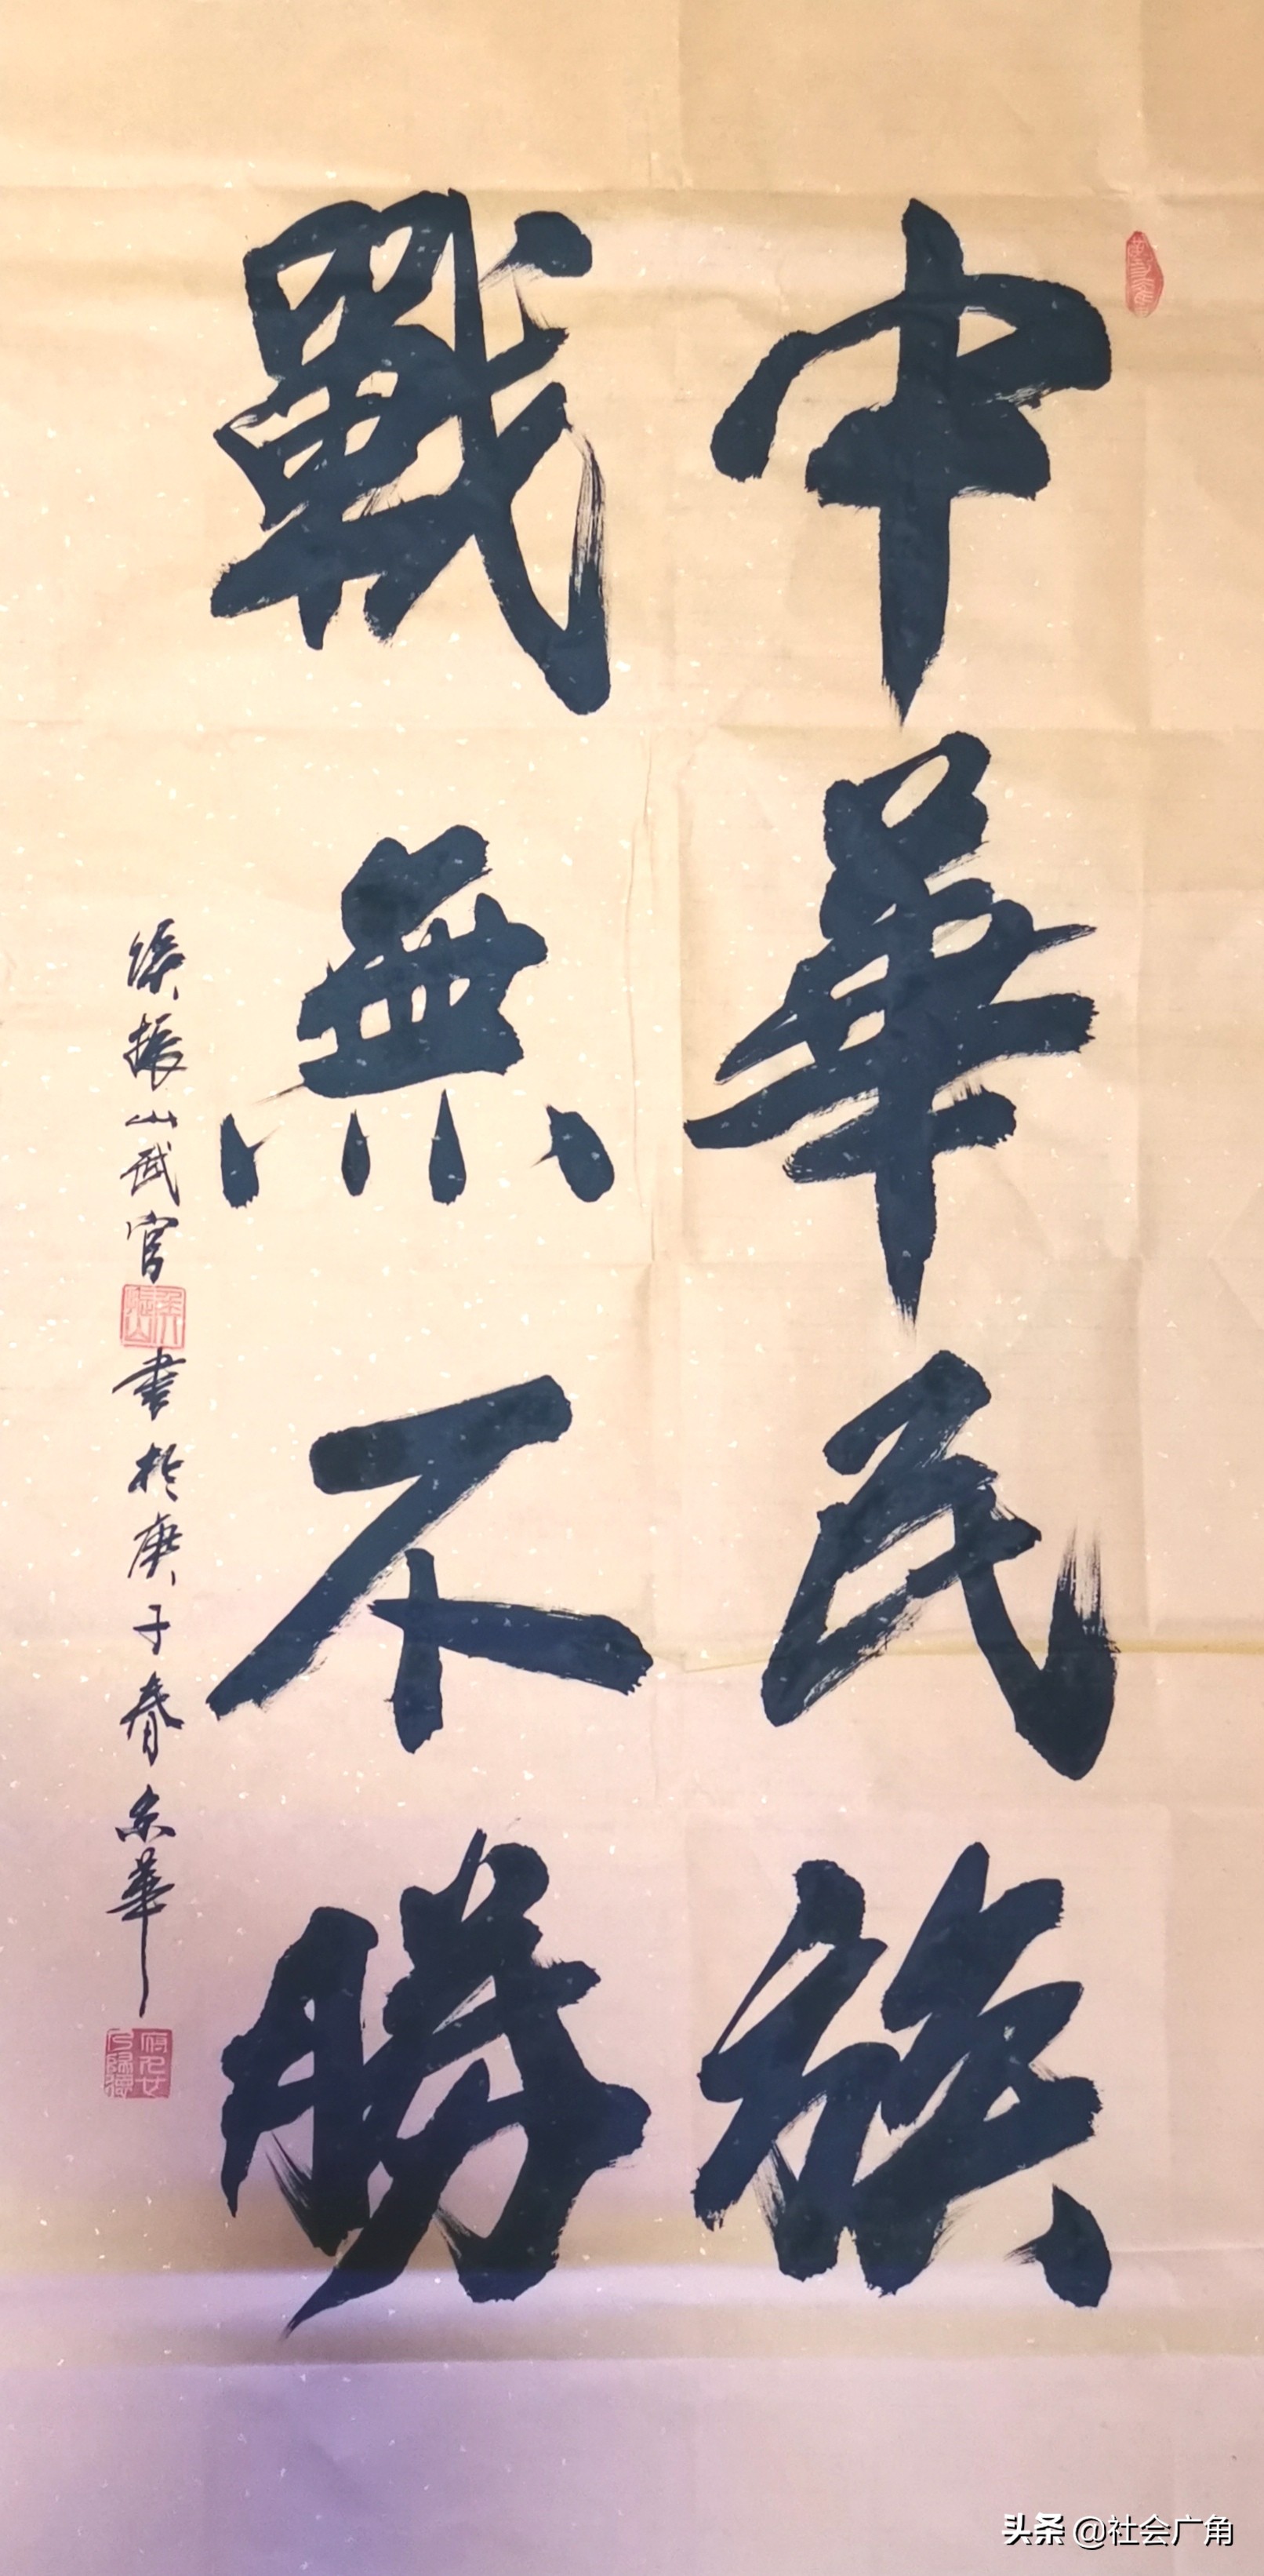 中華民族
戰無不勝
侯振山武官書於庚子春京華
头条 @社会广角